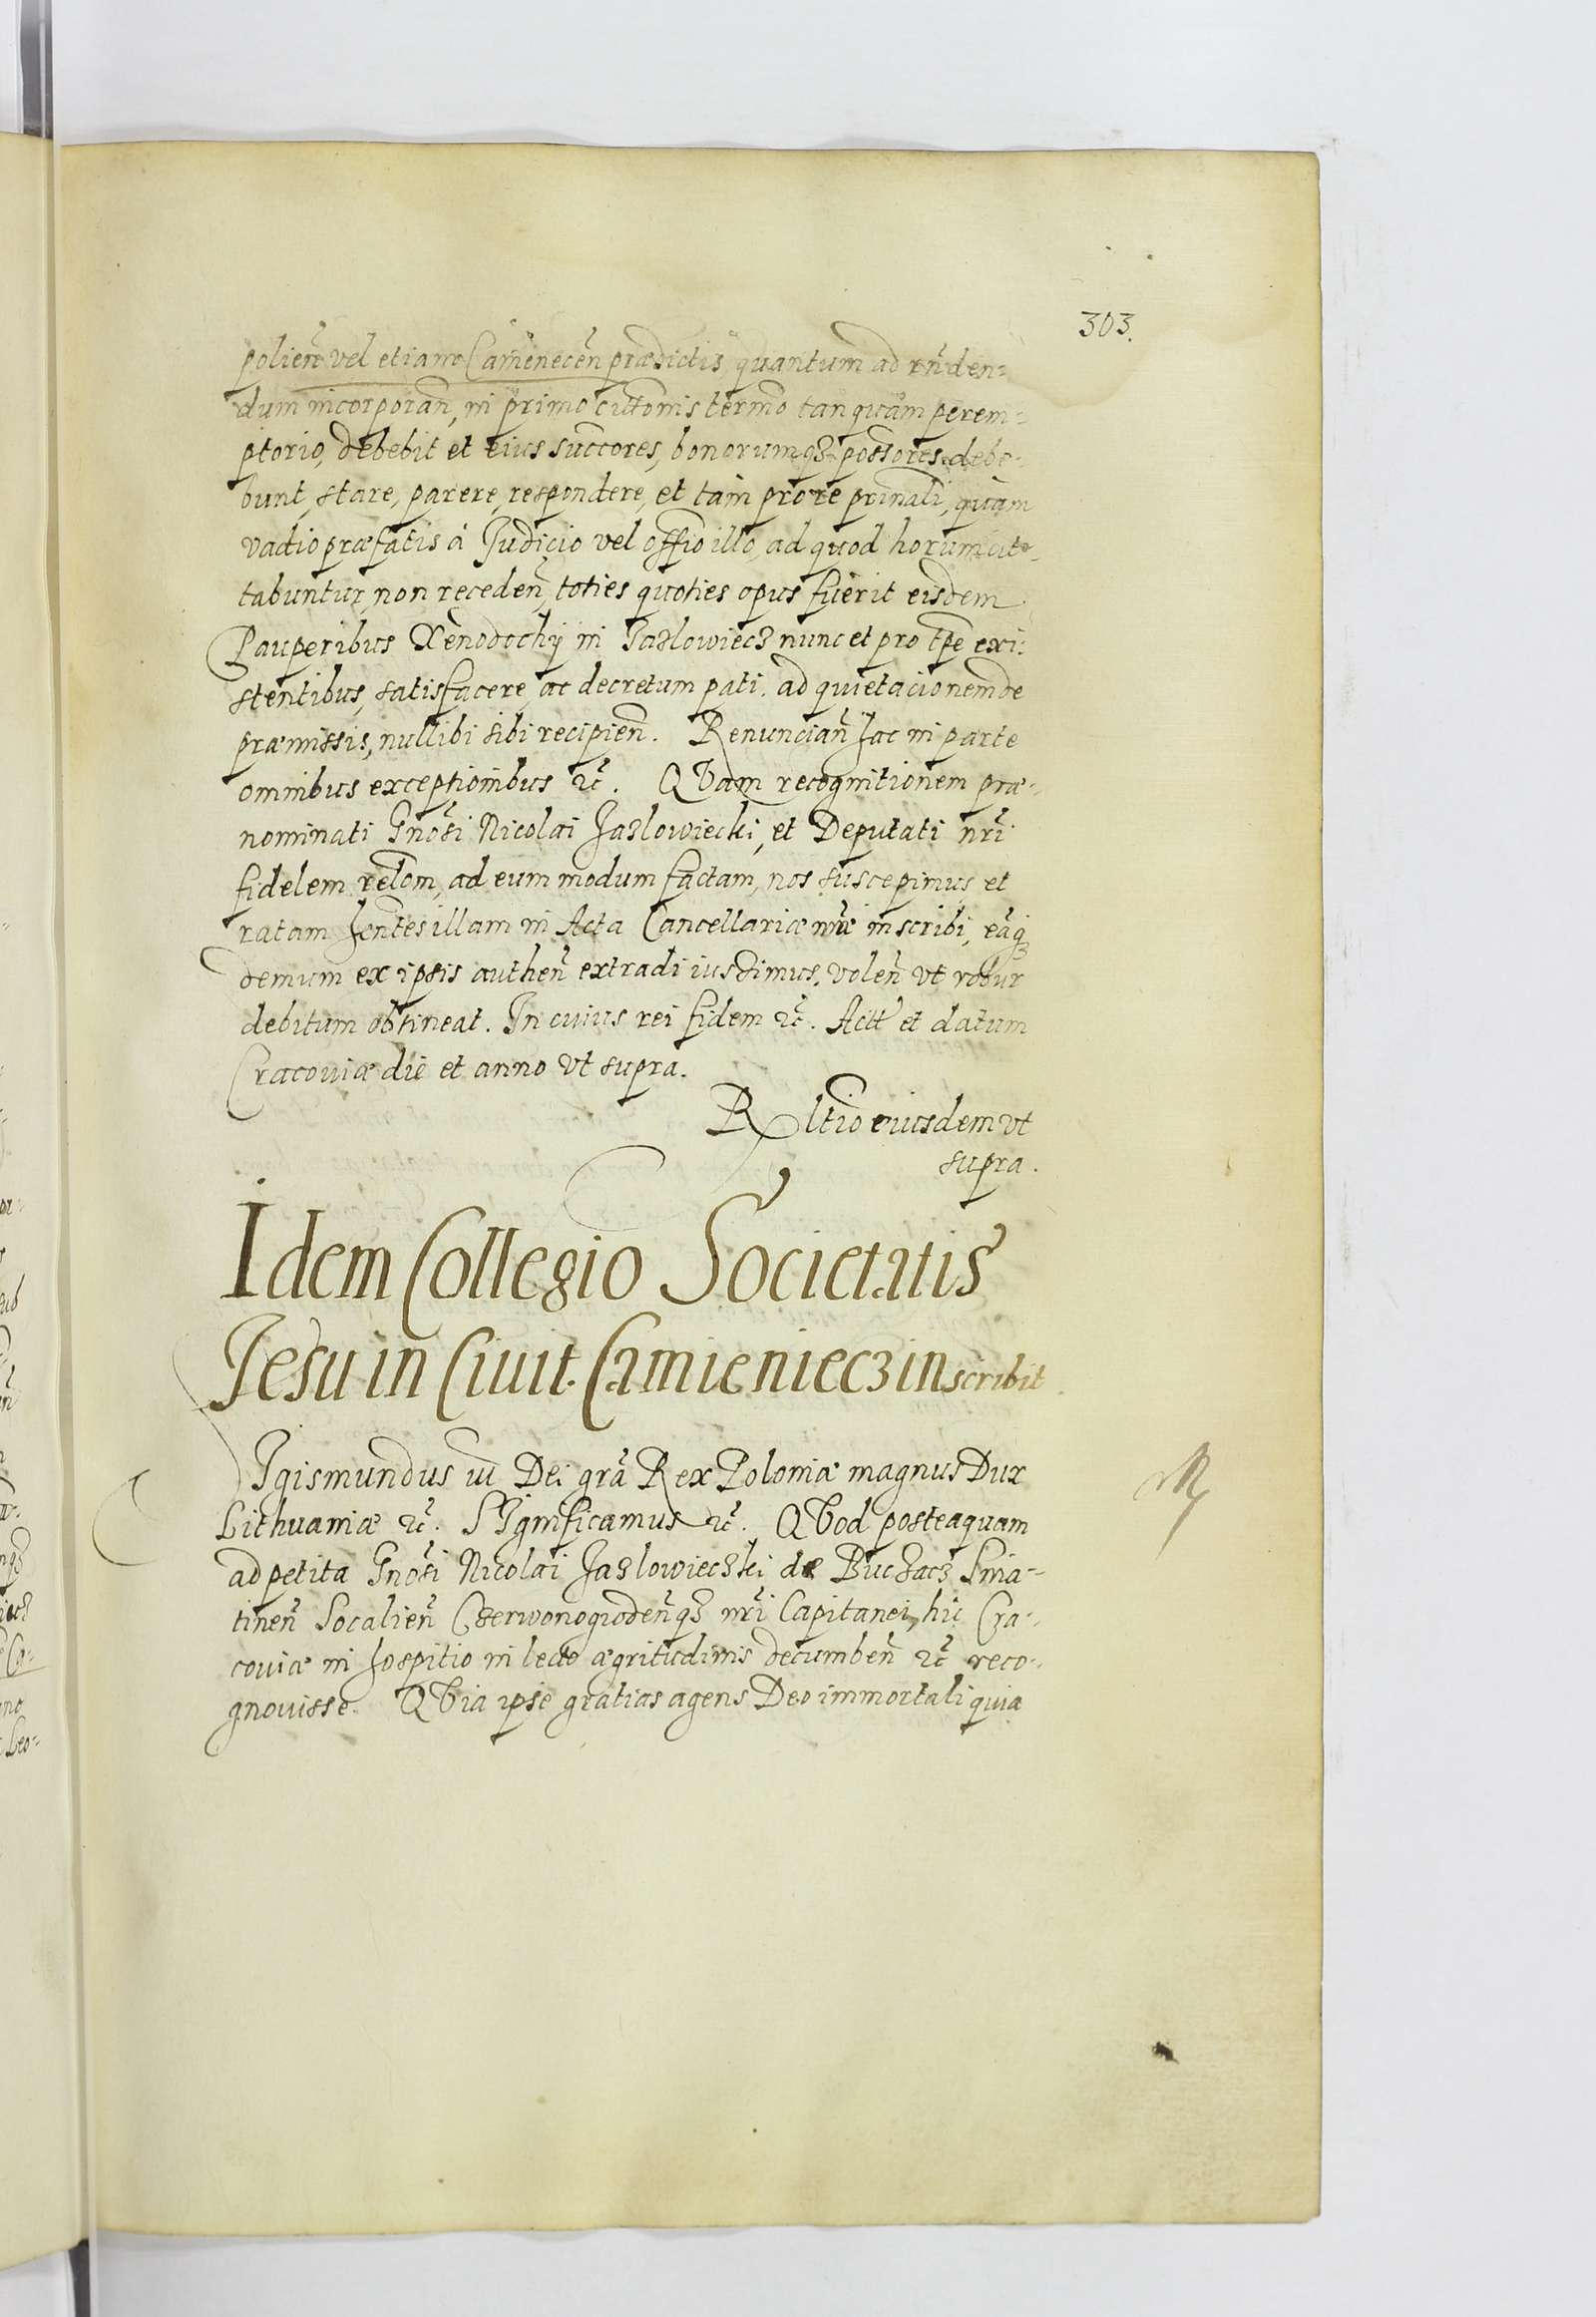 303.
polien̄ vel etiam Camenecen̄ prædictis, quantum ad rn̄den:
dum incorporan̄, in primo cittõnis termõ tanquam perem-
ptorio, debebit et eius succ̃ores, bonorumqȝ possõres debe-
bunt, stare, parere, respondere, et tam pro re prinãli, quàm
vadio præfatis à Judicio vel offio illo, ad quod horum cita-
tabuntur, non receden̄, toties quoties opus fuerit eisdem
Pauperibus Xenodochij in Jazlowiecz nunc et pro tp̃e exi:
stentibus, satisfacere, ac decretum pati. ad quietacionem de
præmissis, nullibi sibi recipien̄. Renuncian̄ hac in parte
omnibus exceptionibus &c̃. QVam recognitionem præ-
nominati Gnosi Nicolai Jazlowiecki, et Deputati nri
fidelem relõm, ad eum modum factam, nos suscepimus, et
ratam hñtes illam in Acta Cancellariæ nræ inscribi, eãqȝ
demum ex ipsis authen̄ extradi iussimus, volen̄ vt robur
debitum obtineat. In cuius rei fidem &c̃. Actt̃ et datum
Cracouiæ die et anno vt supra.
Rltio eiusdem vt
supra.
Idem Collegio Societatis
Jesu in Ciuit. Camieniecz inscribit
SIgismundus iii Dei grã Rex Poloniæ magnus Dux
Lithuaniæ &c̃. SIgnificamus &c̃. QVod posteaquam
ad petita Gnosi Nicolai Jazlowieczki de Buczacz Snia-
tinen̄ Socalien̄ Czerwonogroden̄qȝ nri Capitanei, hic Cra-
couiæ in hospitio in lecto ægritudinis decumben̄ &c̃ reco-
gnouisse. QVia ipse gratias agens Deo immortali quia